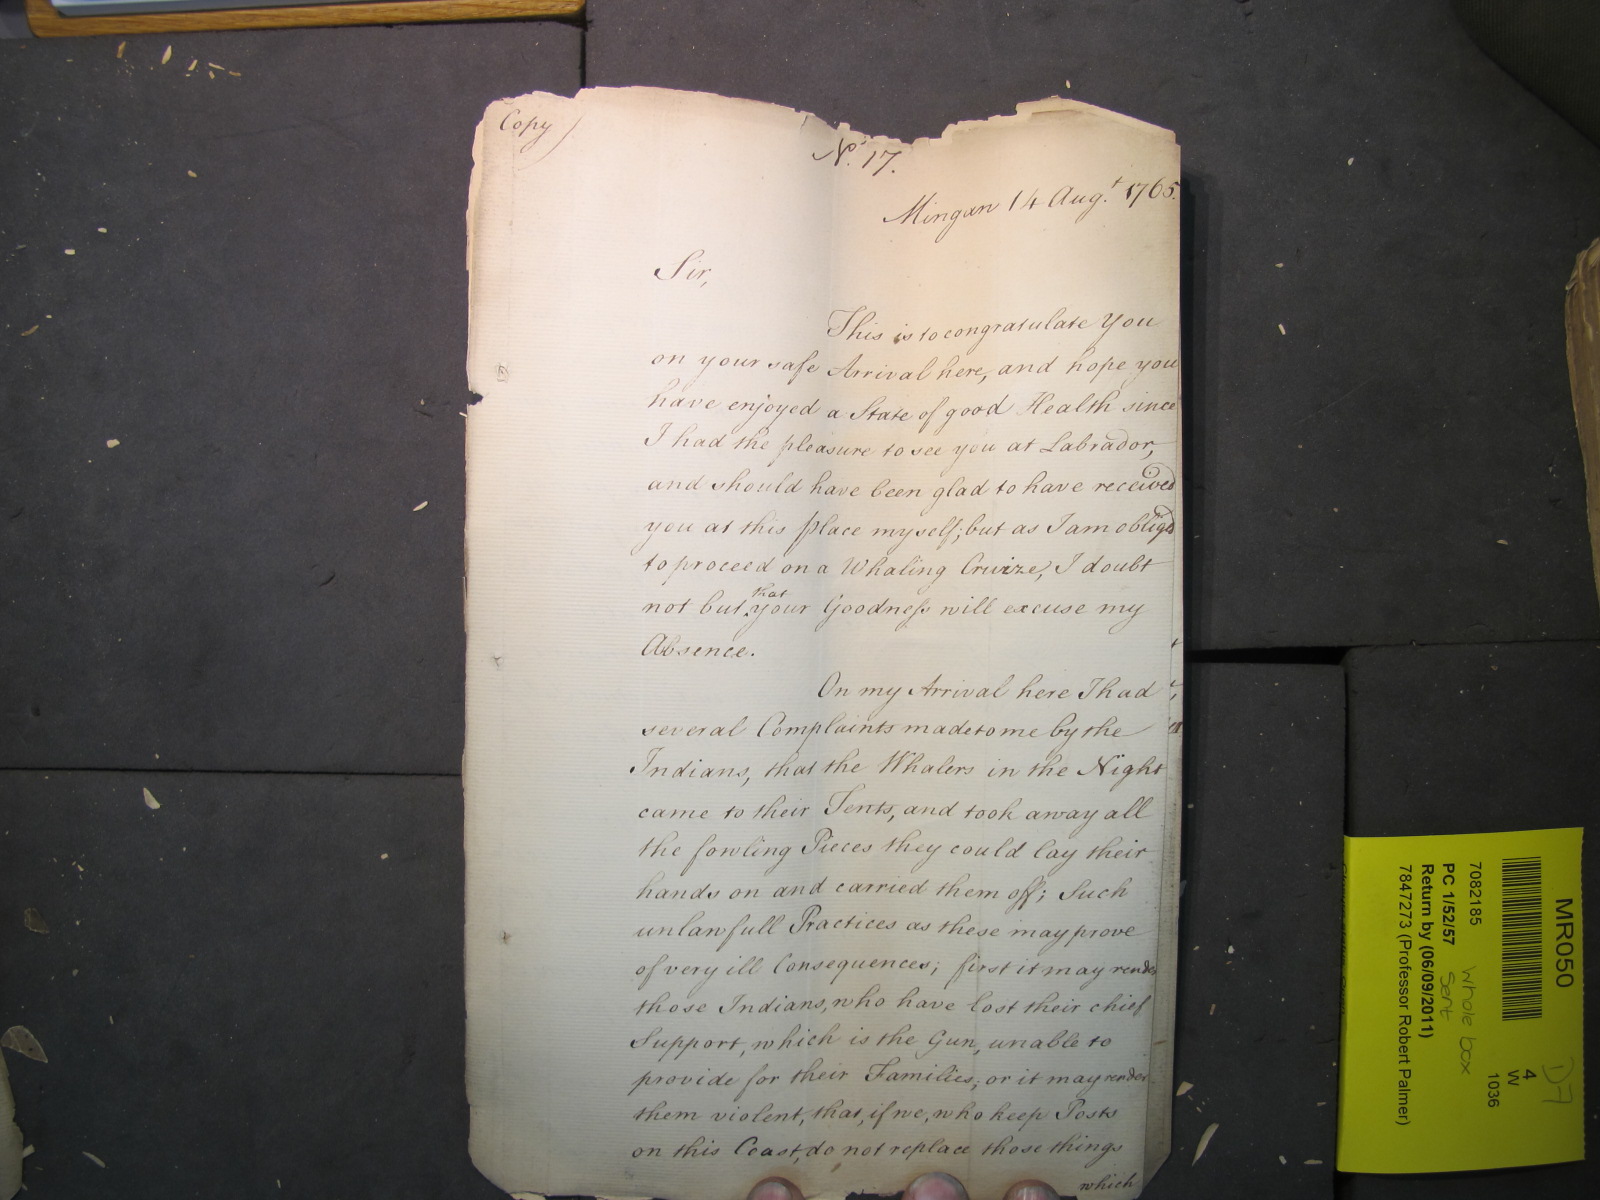 Copy
No. 17.
Mingan 14 Augt. 1765.
Sir,
This is to congratulate You
on your safe Arrival here, and hope you
have enjoyed a State of good Health since
I had the pleasure to see you at Labrador,
and should have been glad to have received
you at this place myself; but as I am obliged
to proceed on a Whaling Cruize, I doubt
not but that your Goodness will excuse my
Absence.
On my Arrival here I had
several Complaints made to me by the
Indians, that the Whalers in the Night
came to their Tents, and took away all
the fowling Pieces they could lay their
hands on and carried them off; Such
unlawfull Practices as these may prove
of very ill Consequences; first it may render
those Indians, who have lost their chief
Support, which is the Gun, unable to
provide for their Families; or it may render
them violent, that, if we, who keep Posts
on this Coast, do not replace those things
which
MR050
4
W
1036
D7
7082185
whole box
PC 1/52/57
Sent
Return by (06/09/2011)
7847273 (Professor Robert Palmer)